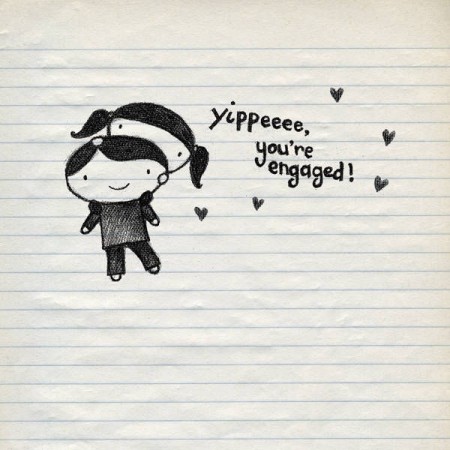 yippeeee,
you're
engaged!